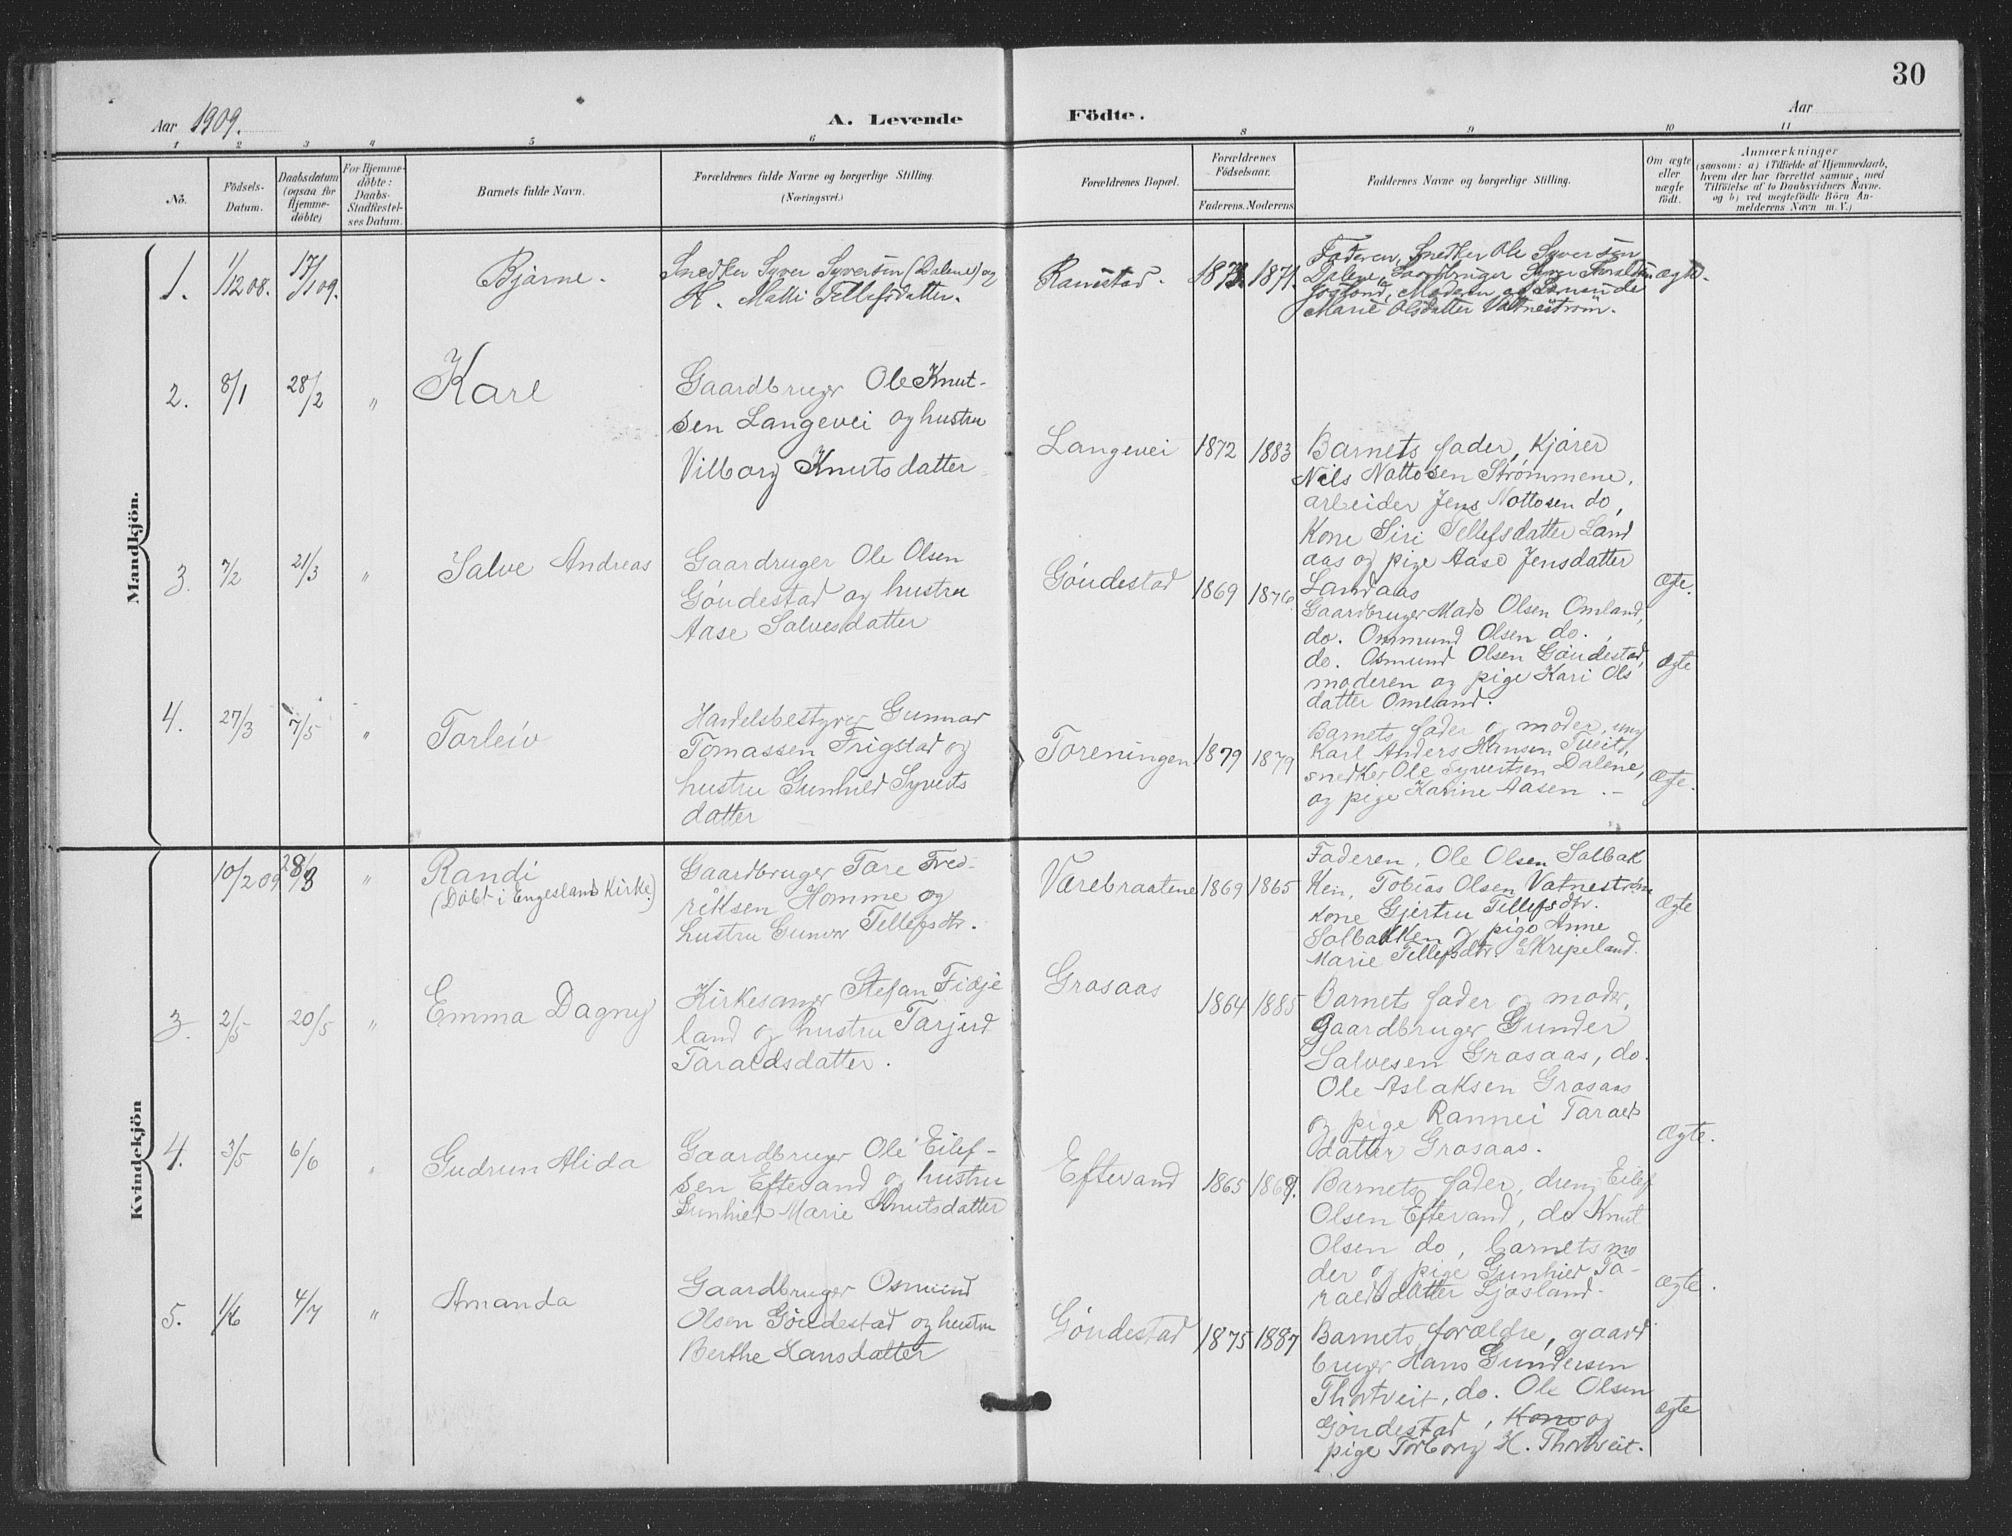 30
Aar 1909.
A. Levende Födte.
Aar
1 2 3 4 5 6 8 9 10 11
No.
Födsels-
Datum.
Daabsdatum
(ogsaa for
Hjemme-
döbte)
For Hjemme-
döbte:
Daabs-
Stadfæstel-
ses Datum.
Barnets fulde Navn.
Forældrenes fulde Navne og borgerlige Stilling.
(Næringsvei.)
Forældrenes Bopæl.
Forældrenes
Födselsaar.
Faderens. Moderens.
Faddernes Navne og borgerlige Stilling.
Om ægte
eller
uægte
født.
Anmærkninger
(saasom: a) i Tilfælde af Hjemmedaab,
hvem der har forrettet samme, med
Tilföielse af to Daabsvidners Navne.
og b) ved uegtefödte Börn An-
melderens Navn m. V.)
Mandkjön.
1. 1/12 08. 17/1 09. Bjarne.
Snedker Syver Syversen (Dalene) og
H. Matti Tellefsdatter.
Ramstad. 1871.
Faderen, Snedker Ole Syversen
Dalene,
Marie Olsdatter Vatneström.
ægte.
2. 8/1 28/2 " Kare
Gaardbruger Ole Knut-
sen Langevei og hustru
Vilborg Knutsdatter
Langevei 1872 1883
Barnets fader, Kjører
Nils Nottosen Strømmene,
arbeider Jens Nottosen do,
Kone Siri Tellefsdatter Land
aas og pige Aase Jensdatter
Landaas
ægte.
3. 7/2 21/3 " Salve Andreas
Gaardruger Ole Olsen
Göndestad og hustru
Aase Salvesdatter
Göndestad 1869 1876.
Gaardbruger Mads Olsen Omland,
do. Ommund Olsen do.,
do. Osmund Olsen Göndestad,
moderen og pige Kari Ols
datter Omland.
ægte
4. 27/3 7/5 " Torleiv
Handelsbestyrer Gunnar
Tomassen Frigstad og
hustru Gunhild Syverts
datter
Foreningen 1879 1879
Barnets fader og moder, ung
Karl Anders Hansen Tveit,
snedker Ole Syvertsen Dalene,
og pige Karine Aasen.-
ægte.
Kvindekjön
10/2 09 28/3 " Randi
(Döbt i Engesland Kirke.)
Gaardbruger Tare Fred-
riksen Homme og
hustru Gunvor Tellefsdtr.
Værebraatene 1869 1865
Faderen, Ole Olsen Solbak
ken, Tobias Olsen Vatneström
Kone Gjertru Tellefsdtr.
Solbakken og pige Anne
Marie Tellefsdtr. Skripeland.
ægte
3. 2/5 20/5 " Emma Dagny
Kirkesanger Stefan Fidje
land og hustru Tarjerd
Taraldsdatter.
Grosaas 1864 1885
Barnets fader og moder,
Gaardbruger Gunder
Salvesen Grosaas, do.
Ole Aslaksen Grosaas
og pige Rannei Tarald
datter Grosaas.
ægte.
4. 3/5 6/6 " Gudrun Alida
Gaardbruger Ole Eilef-
sen Eftevand og hustru
Gunhild Marie Knutsdatter
Eftevand 1865 1869.
Barnets fader, dreng Eilef
Olsen Eftevand, do Knut
Olsen do, barnets mo
der og pige Gunhild Ta-
raldsdatter Ljosland.
ægte.
5. 1/6 4/7 " Amanda
Gaardbruger Osmund
Olsen Göndestad og hustru
Berthe Hansdatter
Göndestad 1875 1887
Barnets forældre, gaard
bruger Hans Gundersen
Thortveit, do. Ole Olsen
Göndestad, Kone og
pige Torborg H. Thortveit.
ægte